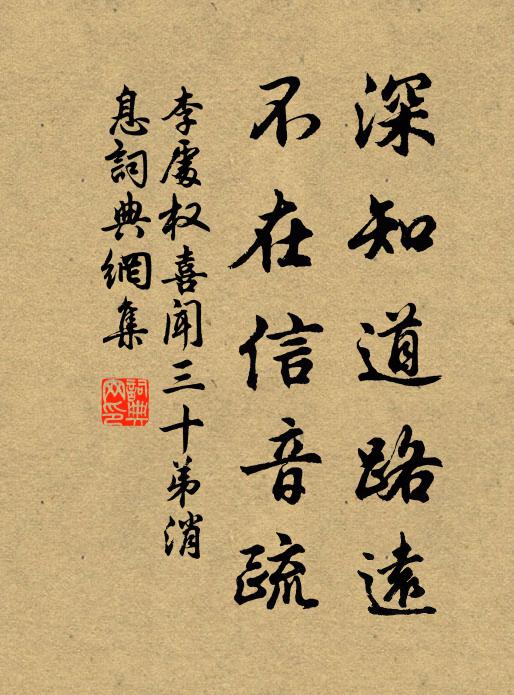 深知道路遠
不在信音疏
李處权喜聞三十弟消
息詞典網集
詞典